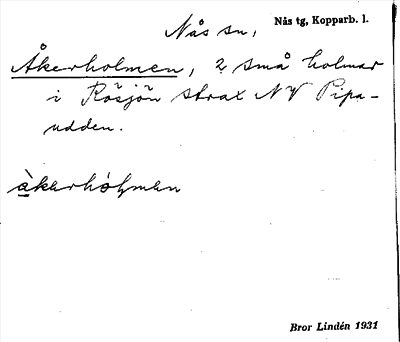 Nås sn, Nås tg, Kopparb. l.
Åkerholmen, 2 små holmar
i Rösjön strax NV Pipa-
udden.
åkerhòlmen
Bror Lindén 1931